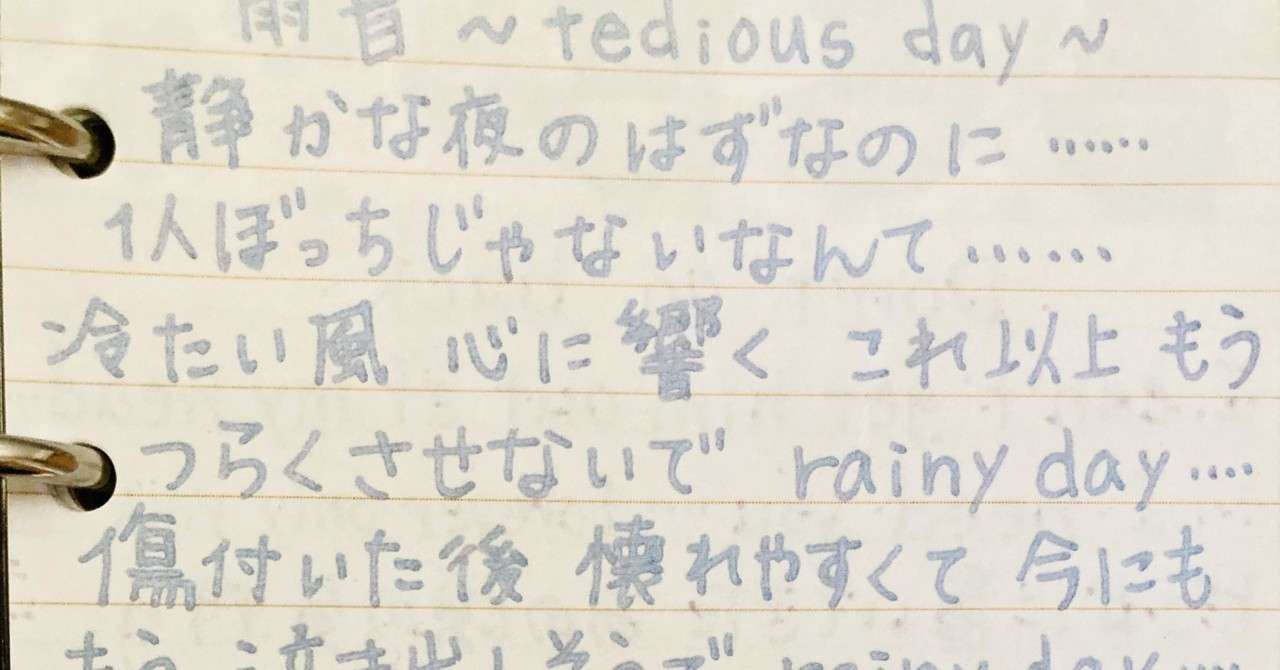 雨音 ~ tedious day ~
静かな夜のはずなのに……
1人ぼっちじゃないなんて……
冷たい風 心に響く これ以上 もう
つらくさせないで rainy day‥‥
傷付いた後 懐れやすくて 今にも
もう 泣き出しそうで rainy day